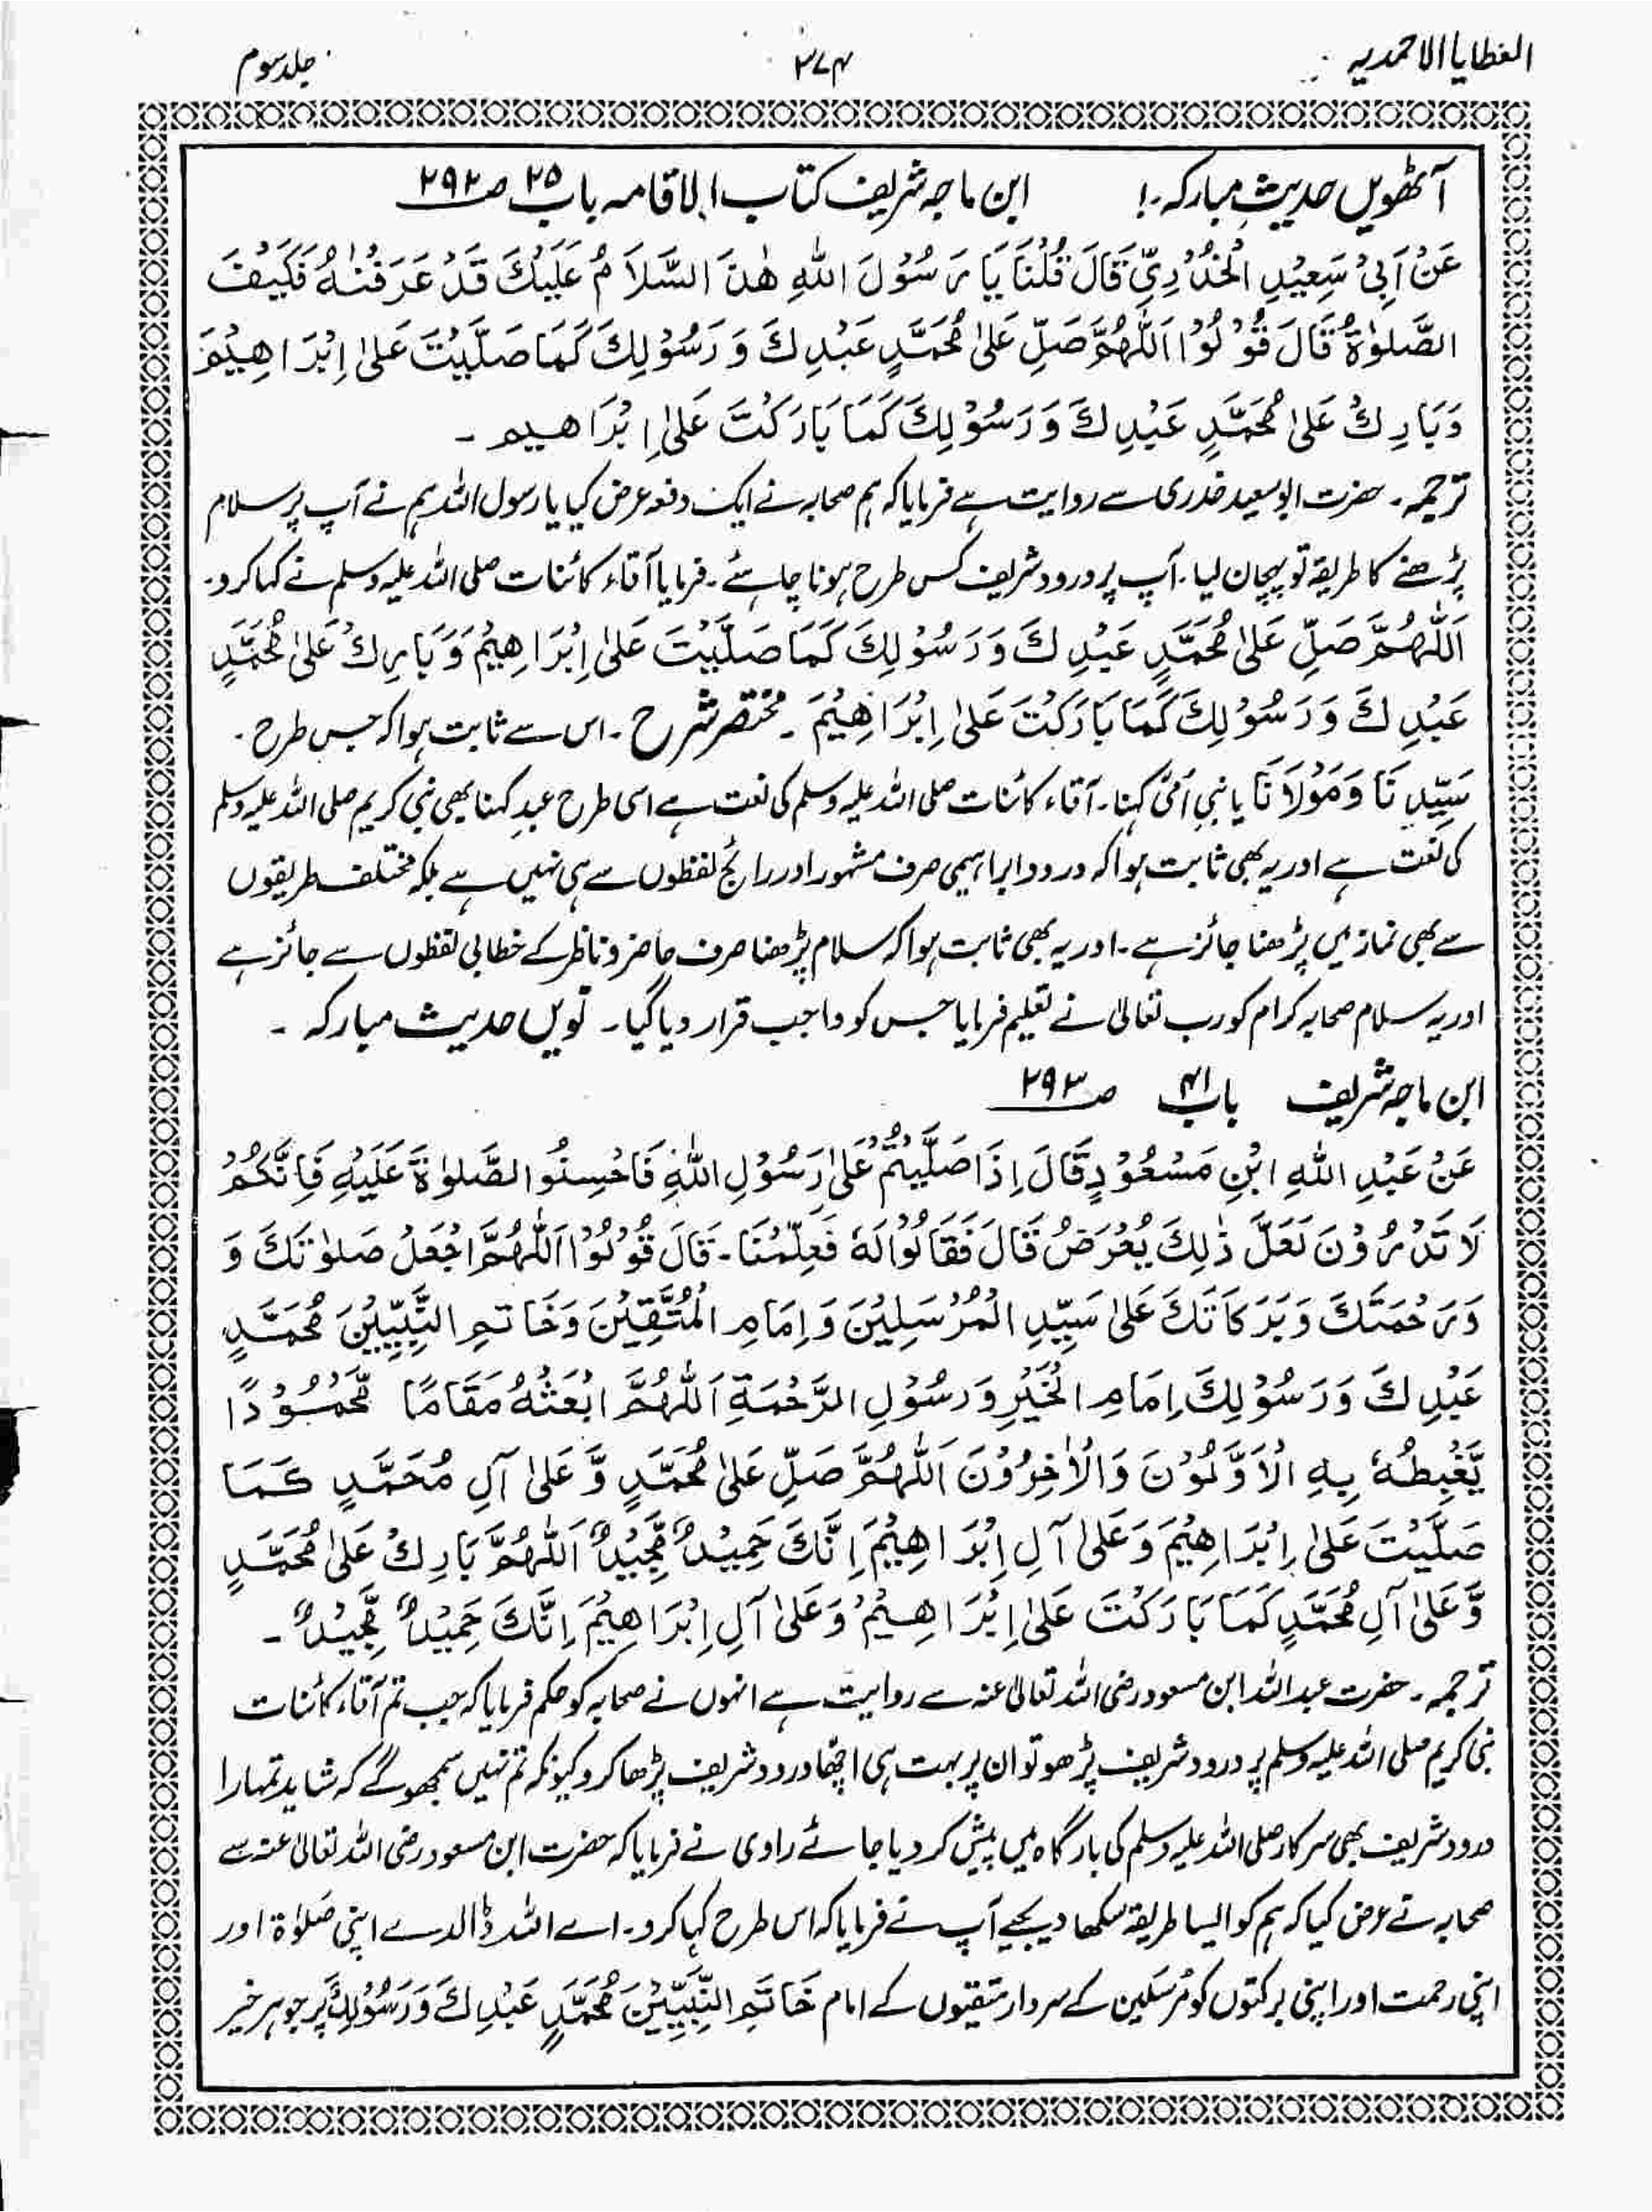 العطایا الاحمدیہ ۳۷۴ جلد سوم
آٹھویں حدیثِ مبارکہ۔! ابن ماجہ شریف کتاب الاقامہ باب ۲۵ صـ ۲۹۲
عَنْ اَبِیْ سَعِیْدِ الْخُدْرِیِّ قَالَ قُلْنَا یَا رَسُوْلَ اللّٰہِ ھٰذَا السَّلَامُ عَلَیْكَ قَدْ عَرَفْنٰہُ فَكَیْفَ
الصَّلوٰۃُ قَالَ قُوْلُوْا اَللّٰھُمَّ صَلِّ عَلیٰ مُحَمَّدٍ عَبْدِكَ وَ رَسُوْلِكَ كَمَا صَلَّیْتَ عَلیٰ اِبْرَاھِیْمَ
وَبَارِكْ عَلیٰ مُحَمَّدٍ عَبْدِكَ وَ رَسُوْلِكَ كَمَا بَارَكْتَ عَلیٰ اِبْرَاھیم ۔
ترجمہ ۔ حضرت ابو سعید خدری سے روایت ہے فرمایا کہ ہم صحابہ نے ایک دفعہ عرض کیا یا رسول اللہ ہم نے آپ پر سلام
پڑھنے کا طریقہ تو پہچان لیا۔ آپ پر درود شریف کس طرح ہونا چاہئے ۔ فرمایا آقاء کائنات صلی اللہ علیہ وسلم نے کہا کرو۔
اَللّٰھُمَّ صَلِّ عَلیٰ مُحَمَّدٍ عَبْدِكَ وَ رَسُوْلِكَ كَمَا صَلَّیْتَ عَلیٰ اِبْرَاھِیْمَ وَ بَارِكْ عَلیٰ مُحَمَّدٍ
عَبْدِكَ وَ رَسُوْلِكَ كَمَا بَارَكْتَ عَلیٰ اِبْرَاھِیْمَ ۔ مختصر شرح ۔ اس سے ثابت ہوا کہ جس طرح ۔
سَیِّدِنَا وَ مَوْلَانَا یا نبی اُمّی کہنا۔ آقاء کائنات صلی اللہ علیہ وسلم کی نعت ہے اسی طرح عبدِ کہنا بھی نبی کریم صلی اللہ علیہ وسلم
کی نعت ہے اور یہ بھی ثابت ہوا کہ درود ابراہیمی صرف مشہور اور رائج لفظوں سے ہی نہیں ہے بلکہ مختلف طریقوں
سے بھی نماز میں پڑھنا جائز ہے ۔ اور یہ بھی ثابت ہوا کہ سلام پڑھنا صرف حاضر و ناظر کے خطابی لفظوں سے جائز ہے
اور یہ سلام صحابہ کرام کو رب تعالیٰ نے تعلیم فرمایا جس کو واجب قرار دیا گیا ۔ نویں حدیث مبارکہ ۔
ابن ماجہ شریف باب ۴۱ صـ ۲۹۳
عَنْ عَبْدِ اللّٰہِ ابْنِ مَسْعُوْدٍ قَالَ اِذَا صَلَّیْتُمْ عَلیٰ رَسُوْلِ اللّٰہِ فَاحْسِنُوا الصَّلوٰۃَ عَلَیْہِ فَاِنَّكُمْ
لَا تَدْرُوْنَ لَعَلَّ ذٰلِكَ یُعْرَضُ قَالَ فَقَالُوْا لَهٗ فَعَلِّمْنَا ۔ قَالَ قُوْلُوْا اَللّٰھُمَّ اجْعَلْ صَلوٰتَكَ وَ
وَ رَحْمَتَكَ وَ بَرَكَاتَكَ عَلیٰ سَیِّدِ الْمُرْسَلِیْنَ وَ اِمَامِ الْمُتَّقِیْنَ وَ خَاتِمِ النَّبِیِّیْنَ مُحَمَّدٍ
عَبْدِكَ وَ رَسُوْلِكَ اِمَامِ الْخَیْرِ وَ رَسُوْلِ الرَّحْمَةِ اَللّٰھُمَّ ابْعَثْهُ مَقَامًا مَّحْمُوْدًا
یَّغْبِطُهٗ بِهِ الْاَوَّلُوْنَ وَالْاٰخِرُوْنَ اَللّٰھُمَّ صَلِّ عَلیٰ مُحَمَّدٍ وَّ عَلیٰ آلِ مُحَمَّدٍ كَمَا
صَلَّیْتَ عَلیٰ اِبْرَاھِیْمَ وَ عَلیٰ آلِ اِبْرَاھِیْمَ اِنَّكَ حَمِیْدٌ مَّجِیْدٌ اَللّٰھُمَّ بَارِكْ عَلیٰ مُحَمَّدٍ
وَّ عَلیٰ آلِ مُحَمَّدٍ كَمَا بَارَكْتَ عَلیٰ اِبْرَاھِیْمَ وَ عَلیٰ آلِ اِبْرَاھِیْمَ اِنَّكَ حَمِیْدٌ مَّجِیْدٌ ۔
ترجمہ ۔ حضرت عبداللہ ابن مسعود رضی اللہ تعالیٰ عنہ سے روایت ہے انہوں نے صحابہ کو حکم فرمایا کہ جب تم آقاء کائنات
نبی کریم صلی اللہ علیہ وسلم پر درود شریف پڑھو تو ان پر بہت ہی اچھا درود شریف پڑھا کرو کیونکہ تم نہیں سمجھو گے کہ شاید تمہارا
درود شریف بھی سرکار صلی اللہ علیہ وسلم کی بارگاہ میں پیش کر دیا جائے راوی نے فرمایا کہ حضرت ابن مسعود رضی اللہ تعالیٰ عنہ سے
صحابہ نے عرض کیا کہ ہم کو ایسا طریقہ سکھا دیجیے آپ نے فرمایا کہ اس طرح کہا کرو۔ اے اللہ ڈالدے اپنی صَلوٰۃ اور
اپنی رحمت اور اپنی برکتوں کو مُرسَلین کے سردار متقیوں کے امام خَاتَمِ النَّبِیِّیْنَ مُحَمَّدٍ عَبْدِكَ وَ رَسُوْلِكَ پَر جو ہر خیر